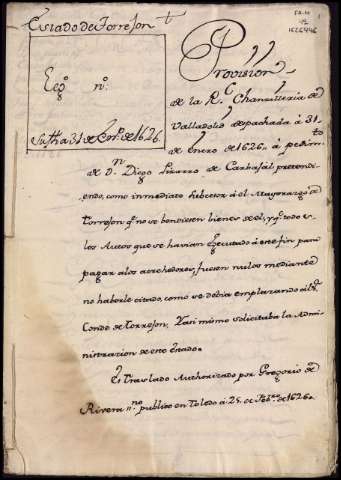 Estado de Torrejon
Leg.º n.º
Su fha 31 de En.º de 1626
Provision
de la R.l Chanzilleria de
Valladolid despachada á 31
de Enero de 1626. á pedim.to
de D.n Diego Pizarro de Carbajal, pretendi-
endo, como inmediato subcesor á el Mayorazgo de
Torrejon q.e no se bendiesen bienes de el, y q.e todos
los Autos que se havian Executado á este fin para
pagar a los acrehedores, fuesen nulos mediante
no haberle citado, como se debia emplazando á el
Conde de Torrejon. Y asi mismo solicitaba la Admi-
nistracion de este Estado.
Es Traslado Authorizado por Gregorio de
Rivera n.no publico en Toledo á 25. de Feb.ro de 1626.